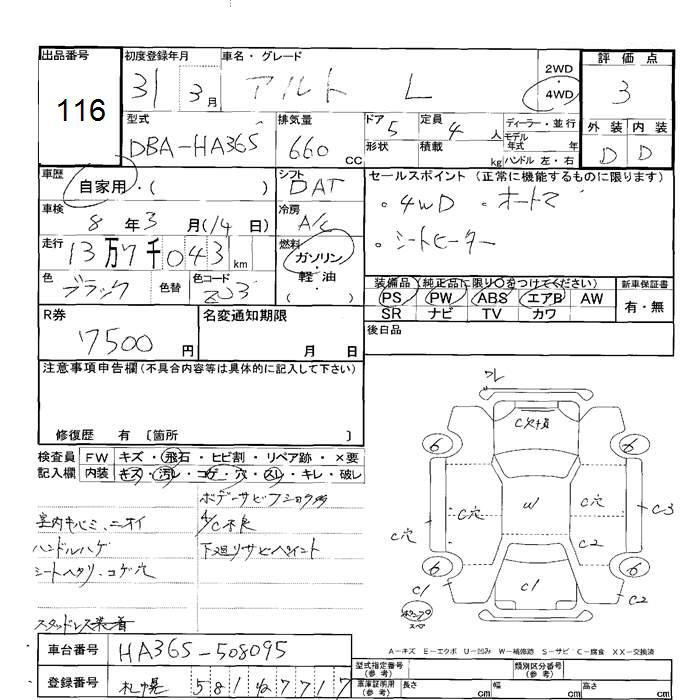 出品番号
116
初度登録年月
31 3月
車名・グレード
アルト L
2WD
・
4WD
評価点
3
型式
DBA-HA36S
排気量
660 cc
ドア 5
形状
定員 4 人
積載 kg
ディーラー・並行
モデル
年式 年
ハンドル 左・右
外装 内装
D D
車歴
自家用・( )
シフト
DAT
車検
8年3月(14日)
冷房
A/C
走行
13万7千043km
燃料
ガソリン・
軽・油
( )
色
ブラック
色替
色コード
ZJ3
セールスポイント (正常に機能するものに限ります)
。4WD 。オートマ
。シートヒーター
装備品(純正品に限り○をつけてください)
PS PW ABS エアB AW
SR ナビ TV カワ
新車保証書
有・無
R券
7500 円
名変通知期限
月 日
後日品
注意事項申告欄(不具合内容等は具体的に記入して下さい)
修復歴 有 〔箇所 〕
検査員
記入欄
FW キズ・飛石・ヒビ割・リペア跡・×要
内装 キズ・汚レ・コゲ・穴・スレ・キレ・破レ
ボデーサビ
室内キバミ、ニオイ
A/C不良
ハンドルハゲ
下廻リサビペイント
シートヘタリ、コゲ穴
スタッドレス装着
ワレ
C欠損
6 6
C穴 W C穴
C穴 C3
C2
6 6
C1 C1 C2
スペア
A-キズ E-エクボ U-凹み W-補修跡 S-サビ C-腐食 XX-交換済
車台番号
HA36S-508095
登録番号
札幌 581ね7717
型式指定番号
(参考)
類別区分番号
(参考)
車庫証明用
(参考)
長さ cm 幅 cm 高さ cm